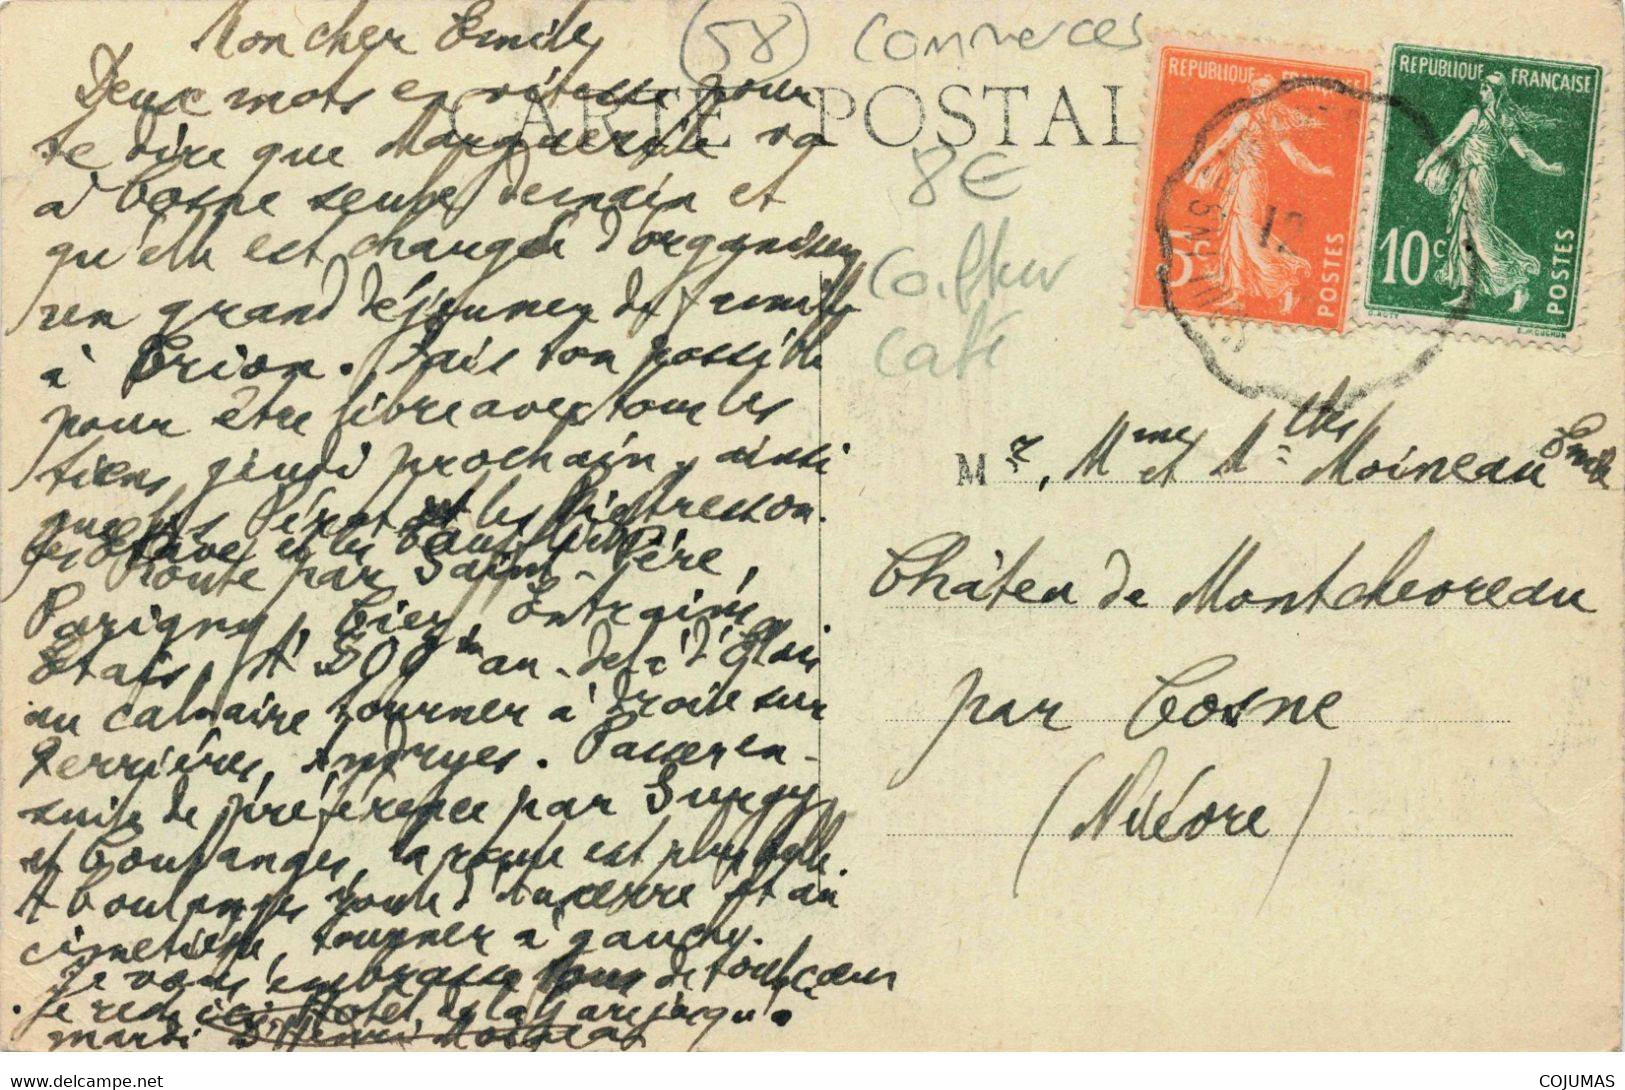 Mon cher Emile,
Deux mots en vitesse pour
te dire que Marguerite va
à Cosne seule demain et
qu'elle est chargée d'organiser
un grand déjeuner de famille
à Crion. Fais ton possible
pour être libre avec tous les
tiens, jeudi prochain, ainsi
que les Pérot et les
les et les
Route par Saint-Père,
Parigny, Ciez, Entrains,
Etais. A 500m au-delà d'Etais
au calvaire tourner à droite sur
Ferrières, Andryes. Passer en-
suite de préférence par Surgy
et Coulanges, la route est plus belle.
A Coulanges route d'Auxerre et au
cimetière, tourner à gauche.
Je vous embrasse tous de tout cœur
Je reste ici Hotel de la Gare jusqu'à
mardi Henri Moineau
58 Commerces
CARTE POSTALE
8€
Coiffeur
Café
REPUBLIQUE FRANÇAISE
5c
POSTES
REPUBLIQUE FRANÇAISE
10c
POSTES
12
Mr, Mme et Mlles Moineau Emile
Château de Montchevreau
par Cosne
(Nièvre)
www.delcampe.net
COJUMAS